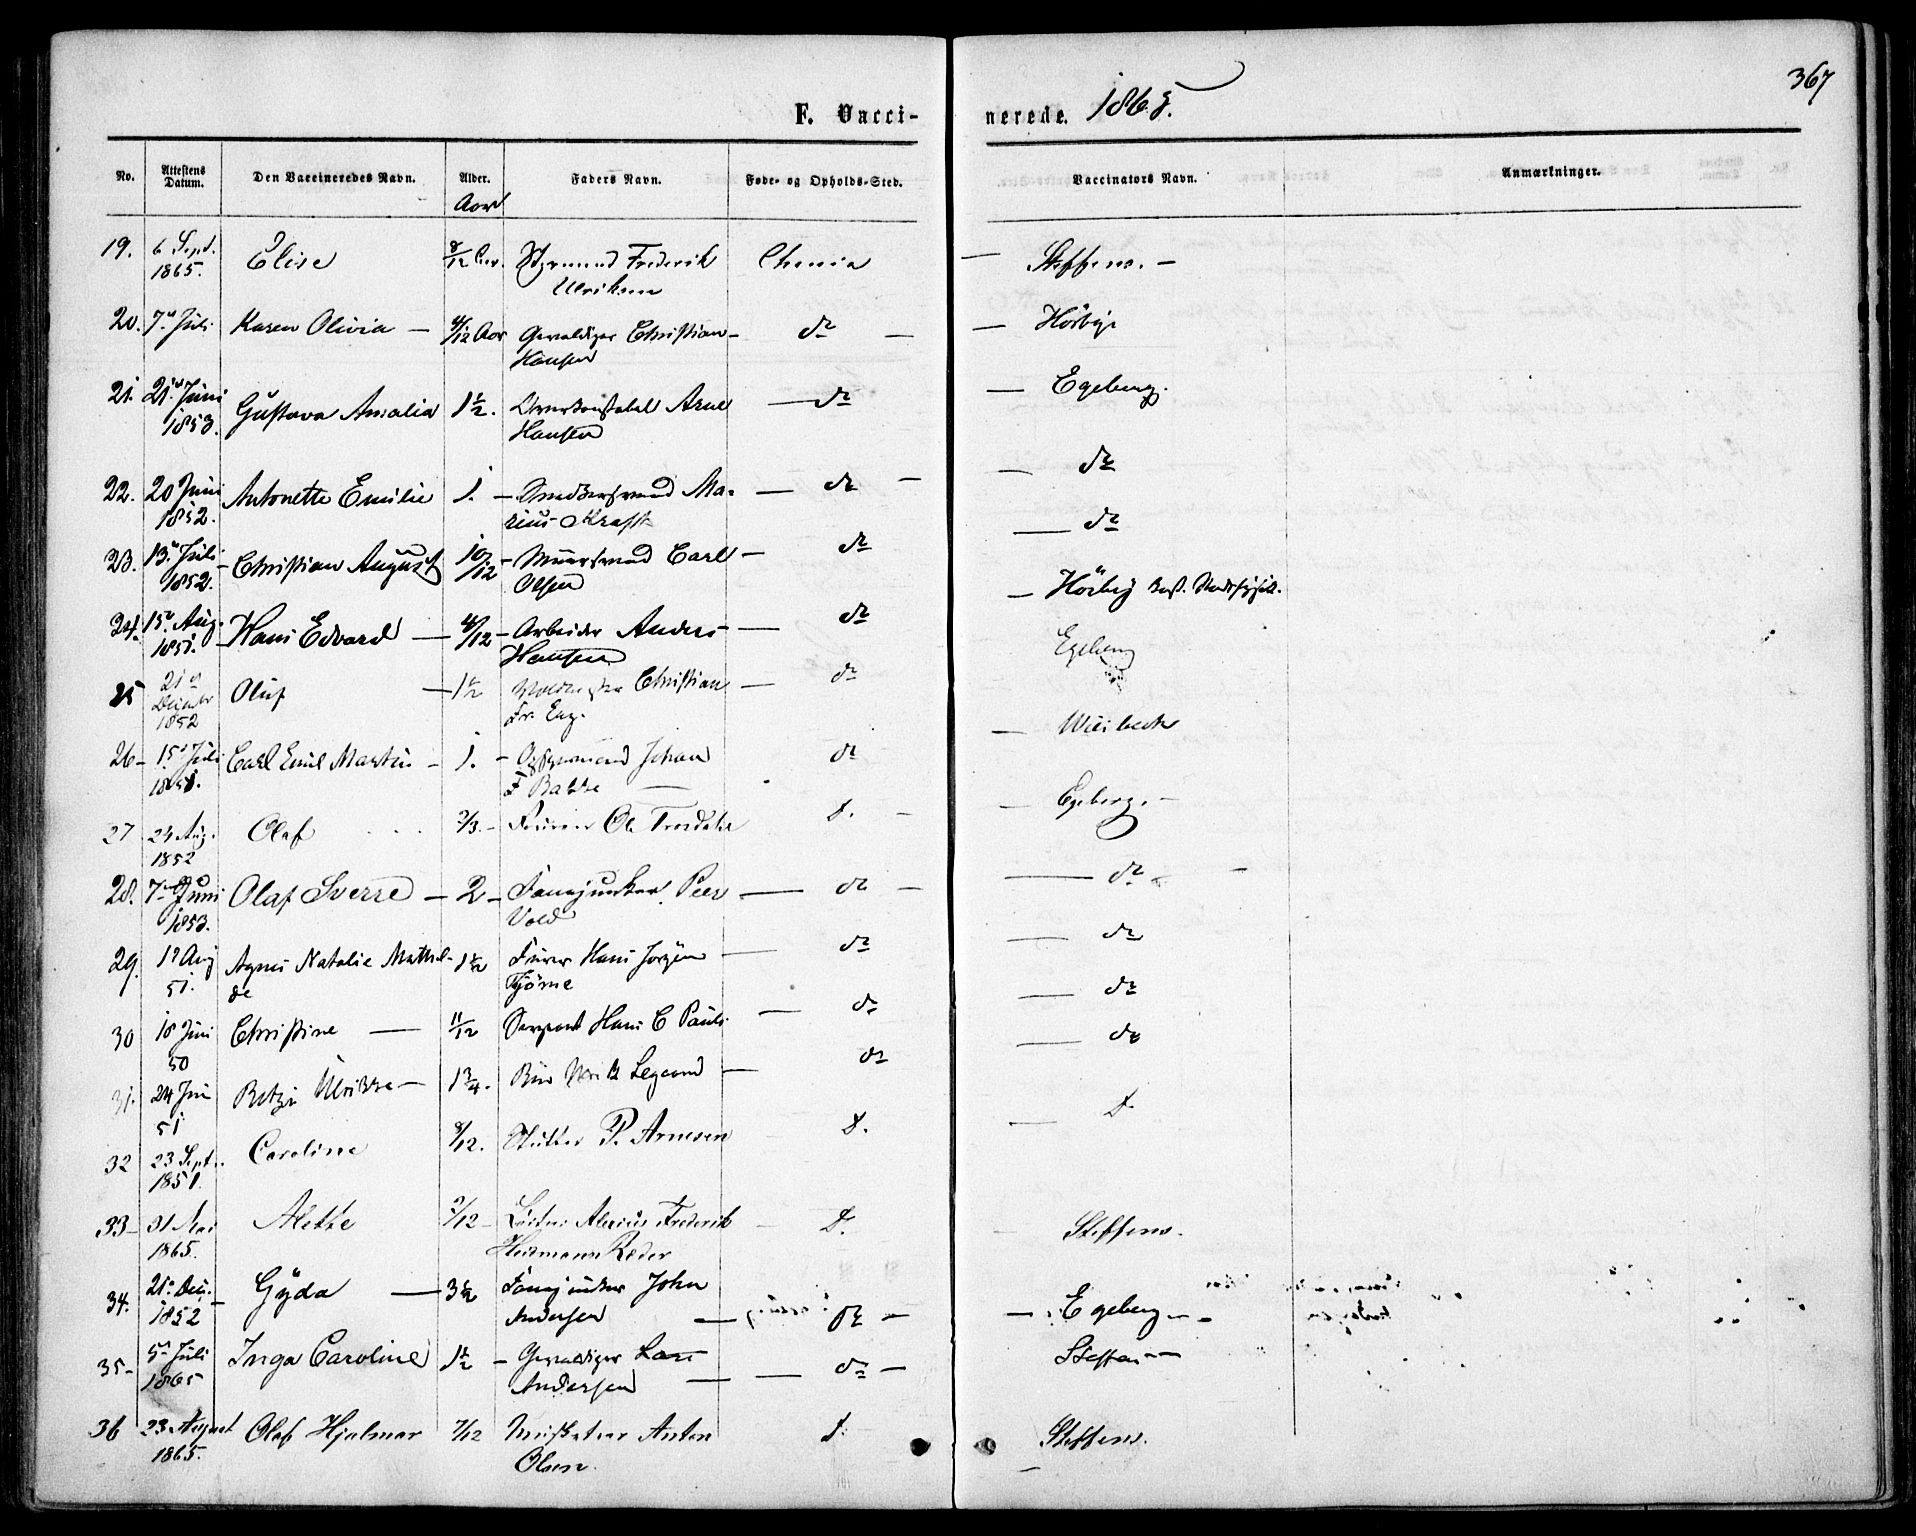 367
F. Vacci- nerede. 1865.
No. Attestens Datum. Den Vaccineredes Navn. Alder. Faders Navn. Føde- og Opholds-Sted. Vaccinators Navn. Anmærkninger.
Aar
19. 6 Sept. 1865. Elise 8/12 Aar. Frederik Ulriksen Chania — Steffens. —
20. 7de Juli Karen Olivia — 4/12 Aar Gevaldiger Christian Hansen — do — — Hörbye
21. 21de Juni 1853. Gustava Amalia 1 1/2. Arne Hansen — do — Egeberg.
22. 20 Juni 1852. Antonette Emilie 1. — Snedkersvend Marius Kraft — do — — do
23. 13de Juli 1852. — Christian August 10/12 — Muursvend Carl Olsen — do — do
24. 15de Aug. 1851. — Hans Edvard — 4/12 — Arbeider Anders Hansen — do — Hörbye
25 21de December 1852 Oluf — 1 1/2 Christian Fr. Eng. — do Egeberg
26 — 15de Juli Carl Emil Martin — 1. — Johan F — do — Wiisbech
27 24 Aug. 1852 Olaf 2/3. — Ole D. — — Egeberg. —
28. 7de Juni 1853. Olaf Sverre — 2 — Fanejunker Peer Vold — do — — do —
29. Aug 51. Agnes Natalie Mathilde 1 1/2 Furer Hans Jørgen Tjöme — do — do
30 18 Juni 50 Christine — 11/12 Sergeant Hans C Pauli — do — do
31. 24 Juni 51 Ulrikke — 1 3/4. — do — do
32 23 Sept. 1851. Caroline 8/12. P. Arnesen D. — D
33 — 31 Mai 1865. Alette 2/12 — Frederik Hermann Ræder — D. Steffens.
34. 21de Dec. 1852 — Gÿda — 3 1/2 Fanejunker John Andersen — do — — Egeberg —
35 — 5te Juli 1865 Inga Caroline 1 1/2 — Gevaldiger Lars Andersen — — do — Steffens —
36 23 August 1865. Olaf Hjalmar 7/12 Musketeer Anton Olsen. D. Steffens.